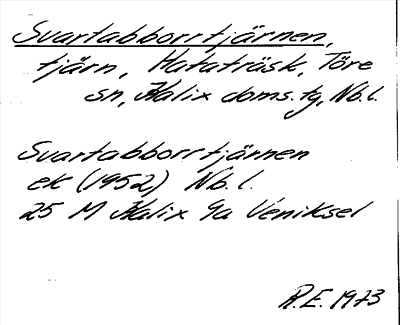 Svartabborrtjärnen,
tjärn, Hataträsk, Töre
sn, Kalix doms.tg, Nb.l.
Svartabborrtjärnen
ek (1952) Nb.l.
25 M Kalix 9a Veniksel
R.E. 1973